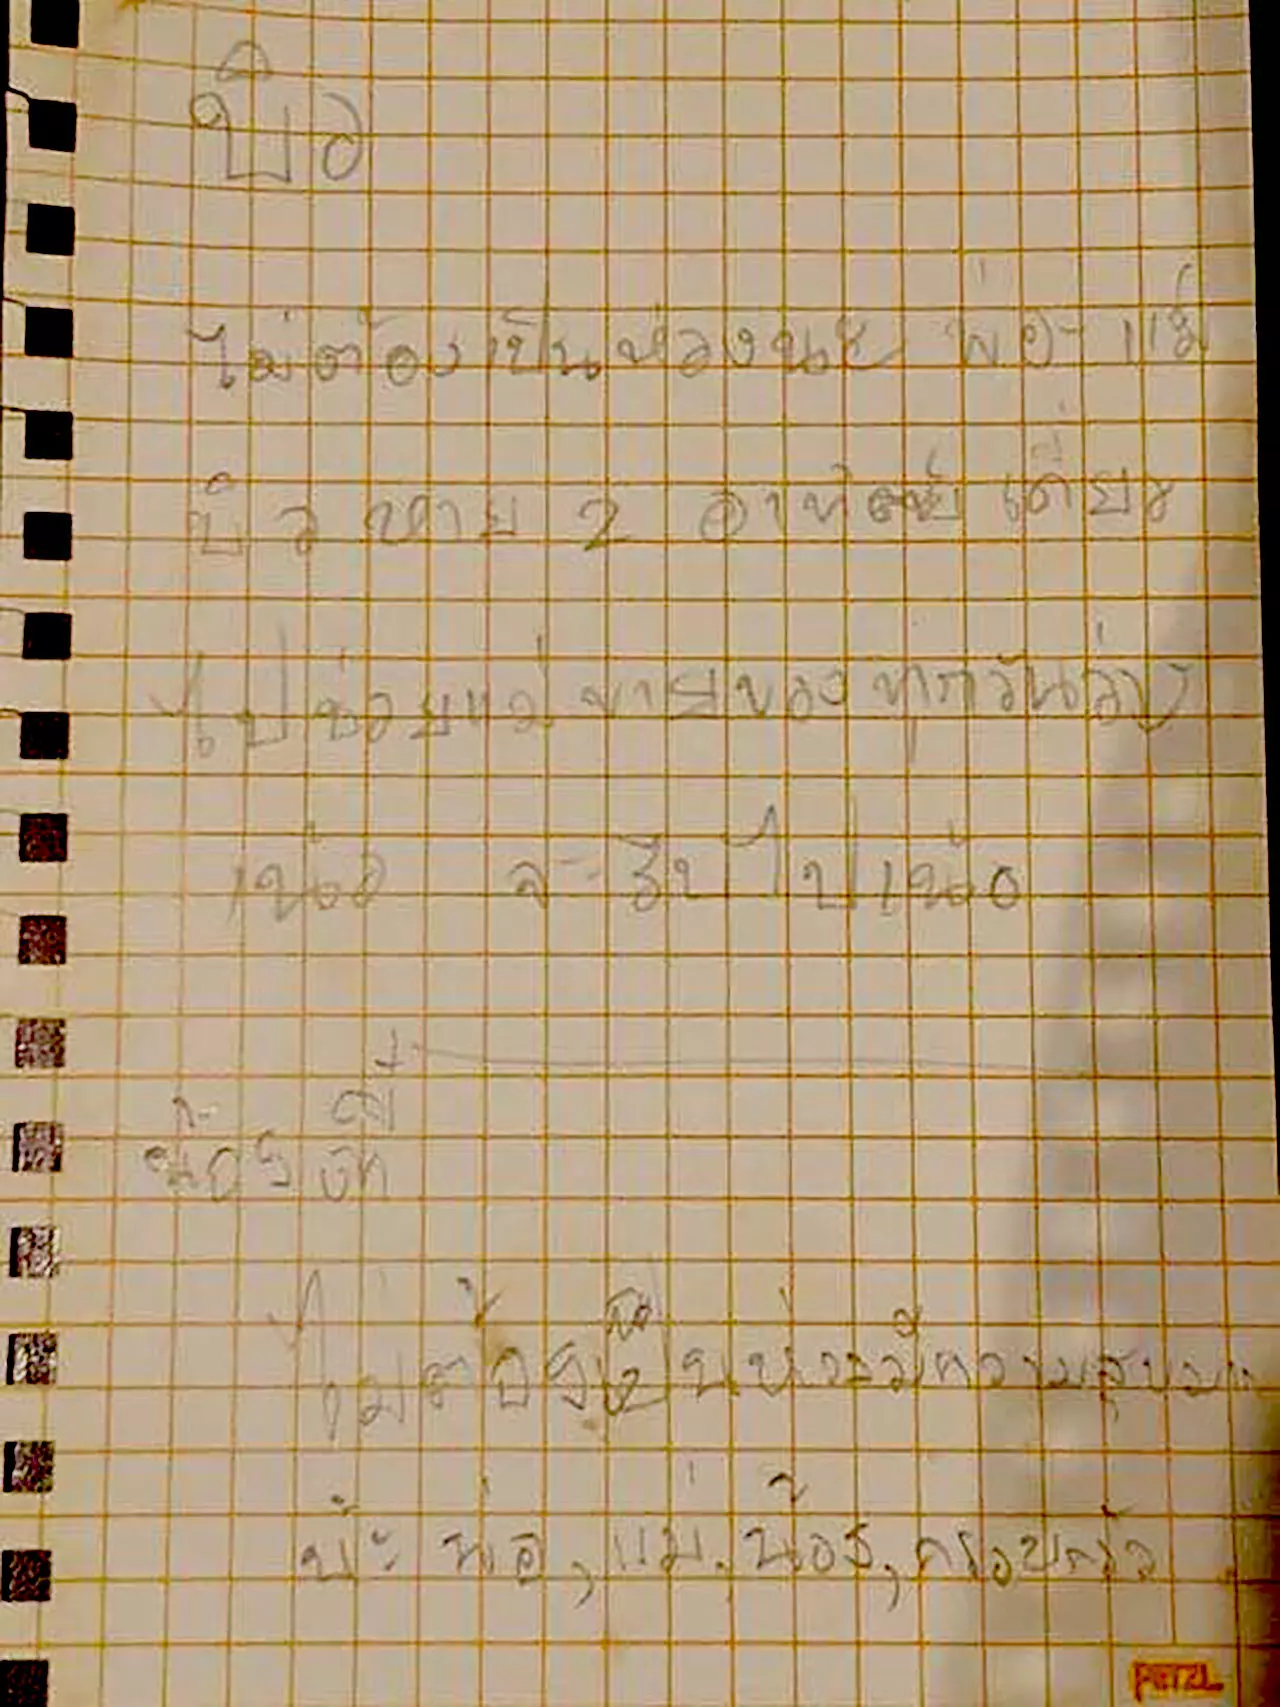 บิว
ไม่ต้องเป็นห่วงนะ พ่อ แม่
บิวหาย 2 อาทิตย์เดี๋ยว
ไปช่วยแม่ขายของทุกวัน
เน้อ จะรีบไปเน้อ
ไม่ต้องเป็นห่วง มีความสุขมาก
น้ะ พ่อ, แม่, น้อง, ครอบครัว
PETZL